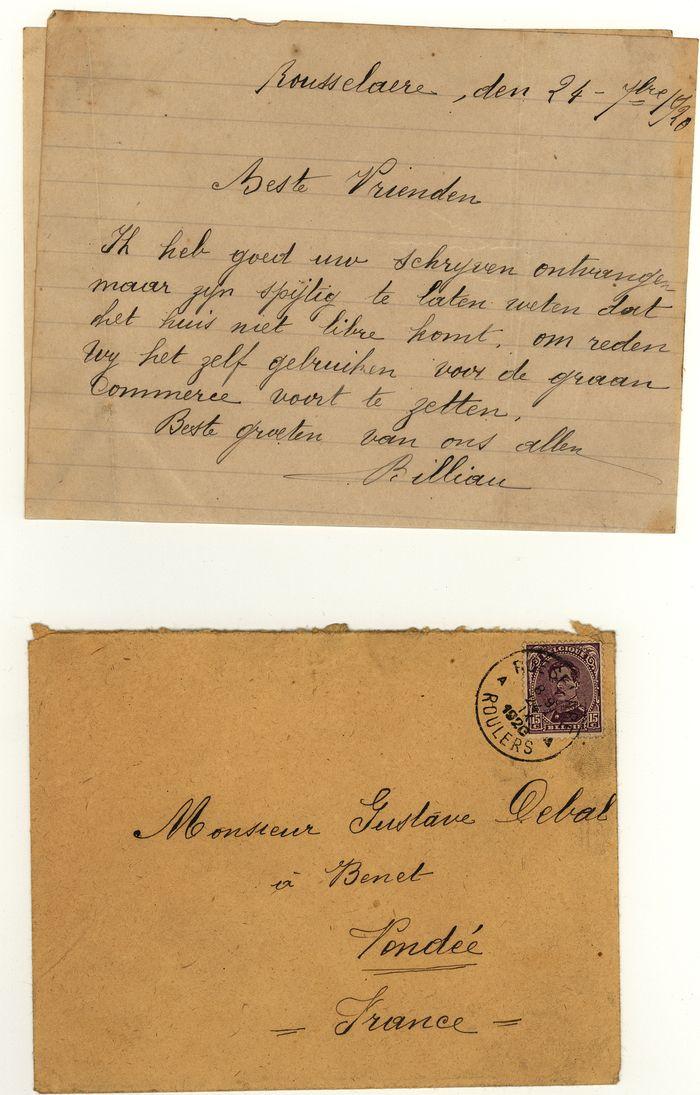 Rousselaere, den 24 - 7bre 1920
Beste Vrienden
Ik heb goed uw schryven ontvangen
maar zyn spijtig te laten weten dat
het huis niet libre komt, om reden
wy het zelf gebruiken voor de graan
Commerce voort te zetten.
Beste groeten van ons allen
Billiau
BELGIQUE
15 C 15 C
BELGIË
ROULERS
IX
1920
Monsieur Gustave Debal
à Benet
Vendée
= France =